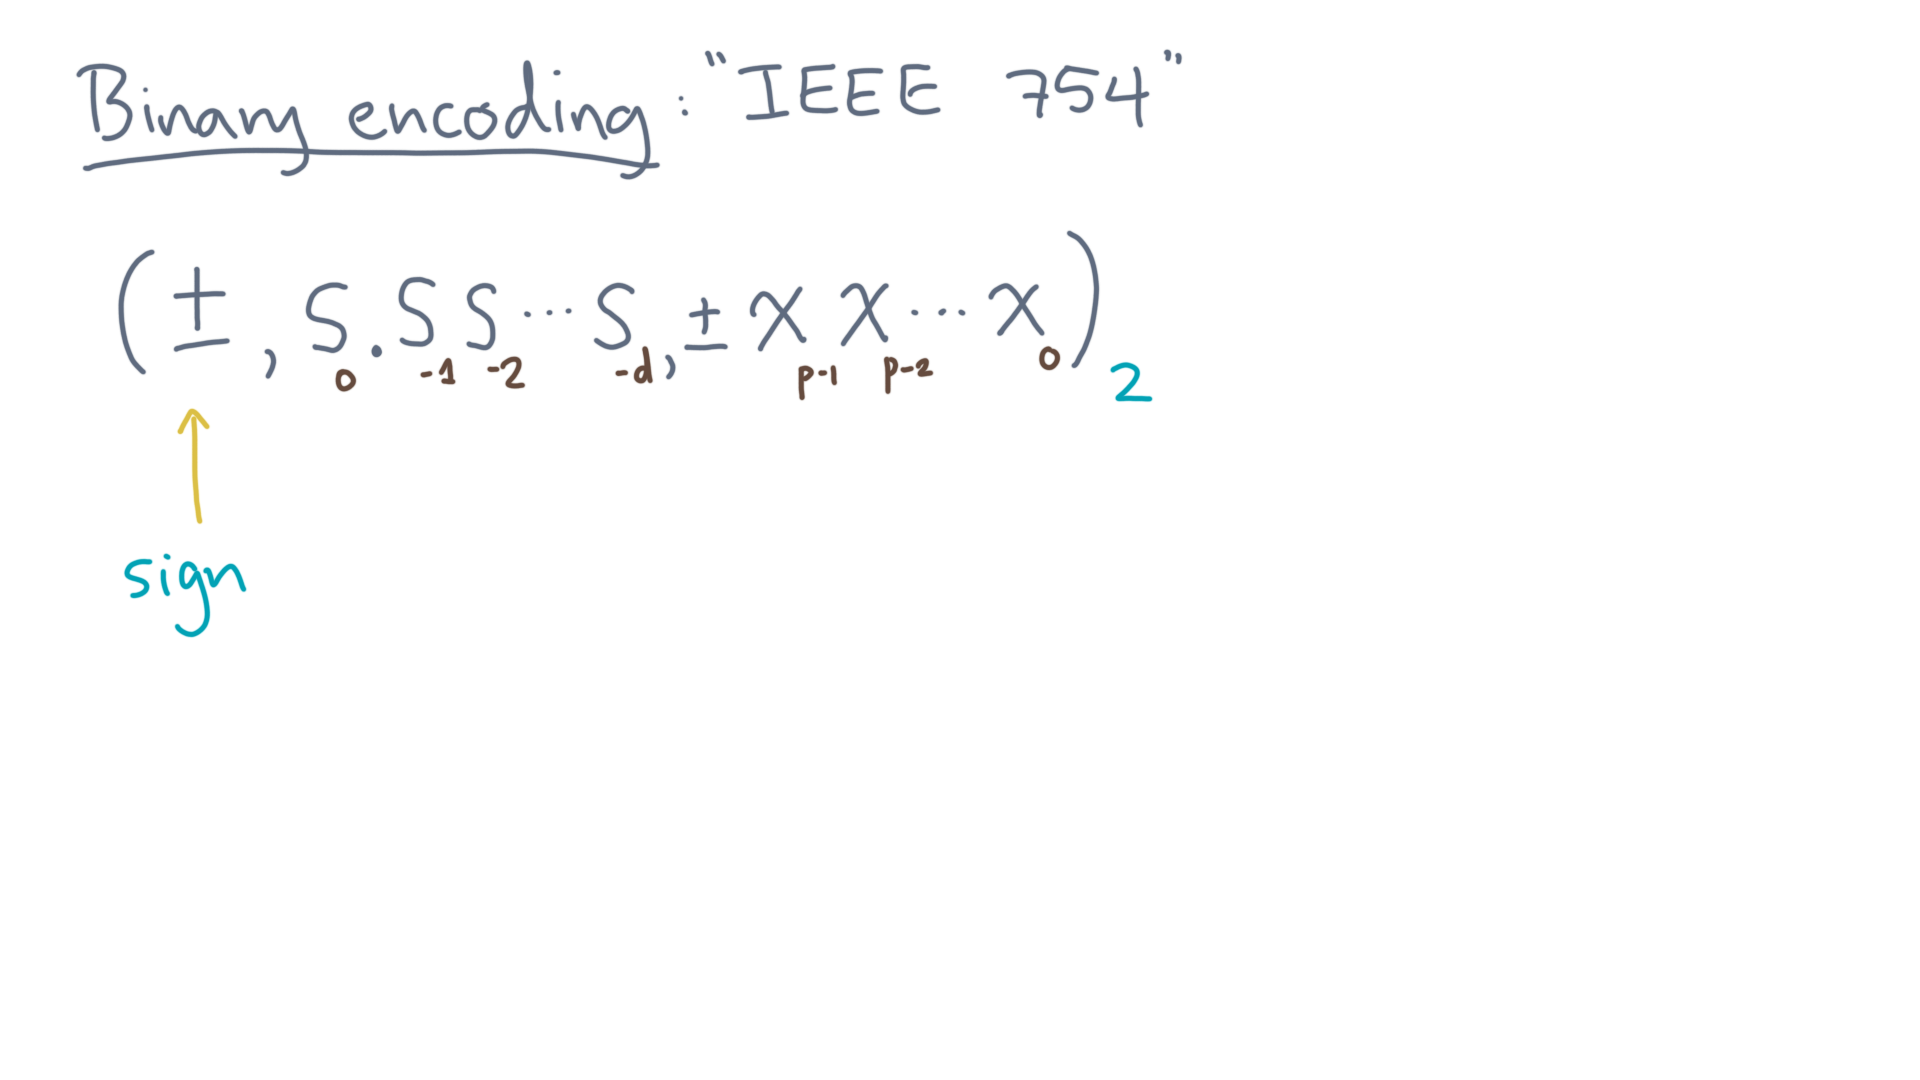 Binary encoding: "IEEE 754"
(±, S₀.S₋₁S₋₂···S₋d, ±xₚ₋₁xₚ₋₂···x₀)₂
sign